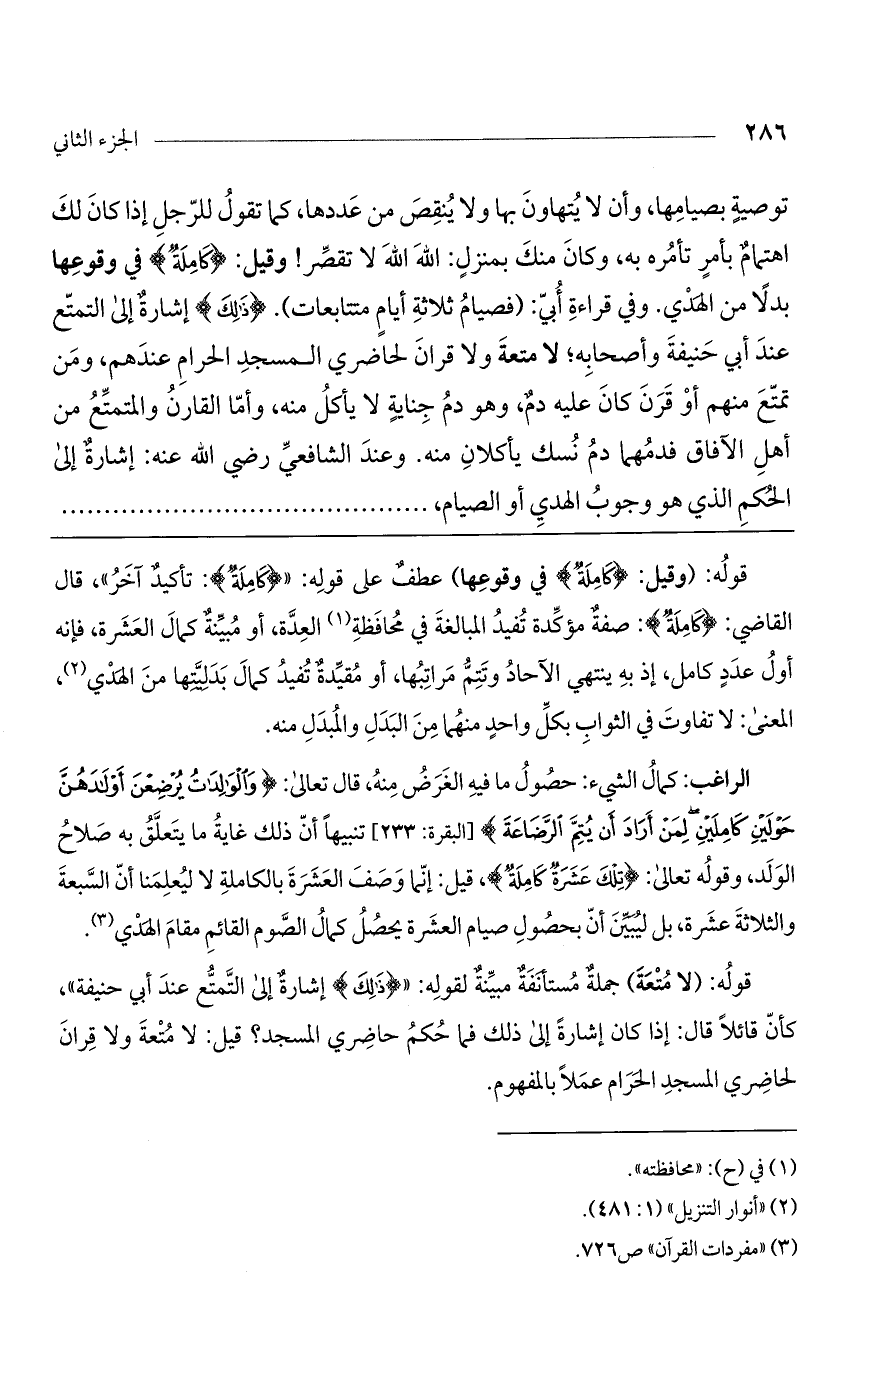 ٢٨٦ الجزء الثاني
توصيةٍ بصيامِها، وأن لا يُتهاونَ بها ولا يُنقِصَ من عَددها، كما تقولُ للرّجلِ إذا كانَ لكَ
اهتمامٌ بأمرٍ تأمُره به، وكانَ منكَ بمنزلٍ: اللهَ اللهَ لا تقصِّر! وقيل: ﴿كَامِلَةٌ﴾ في وقوعِها
بدلًا من الهَدْي. وفي قراءةِ أُبيّ: (فصيامُ ثلاثةِ أيامٍ متتابعات). ﴿ذَٰلِكَ﴾ إشارةٌ إلىٰ التمتّع
عندَ أبي حَنيفةَ وأصحابِه؛ لا متعةَ ولا قرانَ لحاضري المسجدِ الحرامِ عندَهم، ومَن
تمتّعَ منهم أوْ قَرَنَ كانَ عليه دمٌ، وهو دمُ جِنايةٍ لا يأكلُ منه، وأمّا القارنُ والمتمتِّعُ من
أهلِ الآفاق فدمُهما دمُ نُسك يأكلانِ منه. وعندَ الشافعيِّ رضي الله عنه: إشارةٌ إلىٰ
الحُكمِ الذي هو وجوبُ الهديِ أو الصيام، ............................................
قولُه: (وقيل: ﴿كَامِلَةٌ﴾ في وقوعِها) عطفٌ على قولِه: «﴿كَامِلَةٌ﴾: تأكيدٌ آخَرُ»، قال
القاضي: ﴿كَامِلَةٌ﴾: صفةٌ مؤكِّدة تُفيدُ المبالغةَ في مُحافَظةِ(١) العِدَّة، أو مُبيِّنةٌ كمالَ العَشَرة، فإنه
أولُ عدَدٍ كامل، إذ بهِ ينتهي الآحادُ وتَتِمُّ مَراتِبُها، أو مُقيِّدةٌ تُفيدُ كمالَ بَدَليَّتِها منَ الهَدْي(٢)،
المعنىٰ: لا تفاوتَ في الثوابِ بكلِّ واحدٍ منهُما مِنَ البَدَلِ والمُبدَلِ منه.
الراغب: كمالُ الشيء: حصُولُ ما فيهِ الغَرَضُ مِنهُ، قال تعالىٰ: ﴿وَٱلْوَٰلِدَٰتُ يُرْضِعْنَ أَوْلَٰدَهُنَّ
حَوْلَيْنِ كَامِلَيْنِ ۖ لِمَنْ أَرَادَ أَن يُتِمَّ ٱلرَّضَاعَةَ﴾ [البقرة: ٢٣٣] تنبيهاً أنّ ذلك غايةُ ما يتَعلَّقُ به صَلاحُ
الوَلَد، وقولُه تعالىٰ: ﴿تِلْكَ عَشَرَةٌ كَامِلَةٌ﴾، قيل: إنّما وَصَفَ العَشَرَةَ بالكاملةِ لا ليُعلِمَنا أنّ السَّبعةَ
والثلاثةَ عشَرة، بل ليُبيِّنَ أنّ بحصُولِ صيامِ العشَرة يحصُلُ كمالُ الصَّوم القائمِ مقامَ الهَدْي(٣).
قولُه: (لا مُتْعَةَ) جملةٌ مُستأنَفَةٌ مبيِّنةٌ لقولِه: «﴿ذَٰلِكَ﴾ إشارةٌ إلىٰ التَّمتُّع عندَ أبي حنيفة»،
كأنّ قائلاً قال: إذا كان إشارةً إلىٰ ذلك فما حُكمُ حاضِري المسجد؟ قيل: لا مُتْعةَ ولا قِرانَ
لحاضِري المسجدِ الحَرَام عمَلاً بالمفهوم.
(١) في (ح): «محافظته».
(٢) «أنوار التنزيل» (١: ٤٨١).
(٣) «مفردات القرآن» ص٧٢٦.